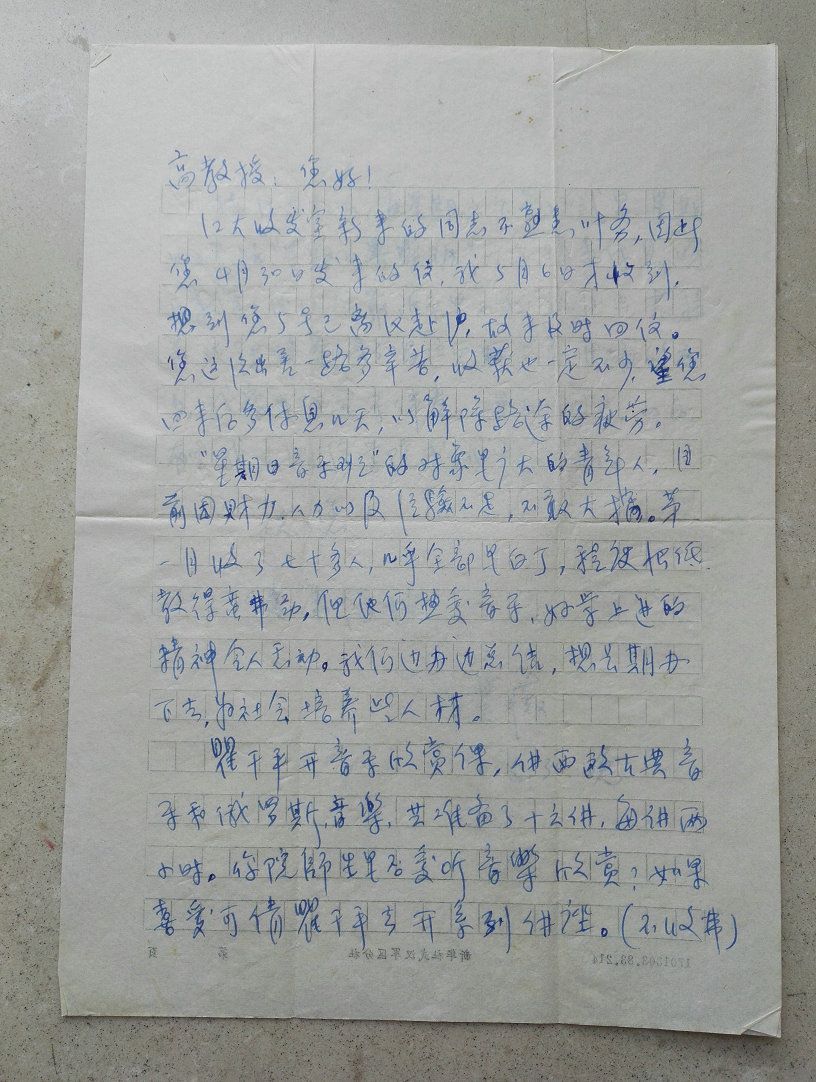 高教授：您好！
江大收发室新来的同志不熟悉业务，因此
您4月30日发来的信，我5月6日才收到，
想到您5号已离汉赴沪，故未及时回信。
您这次出差一路多辛苦，收获也一定不少，望您
回来后多休息几天，以解除路途的疲劳。
"星期日音乐班"的对象是广大的青年人，目
前因财力、人力以及经验不足，不敢大搞。第
一月收了七十多人，几乎全部是白丁，程度极低
教得费劲，但他们热爱音乐、好学上进的
精神令人感动。我们边办边总结，想长期办
下去，为社会培养些人材。
瞿干平开音乐欣赏课，讲西欧古典音
乐和俄罗斯音樂，共准备了十六讲，每讲两
小时。你院师生是否爱听音樂欣赏？如果
喜爱可倩瞿干平去开系列讲座。（不收费）
第 页
新华社武汉军区分社
1701503.83.214